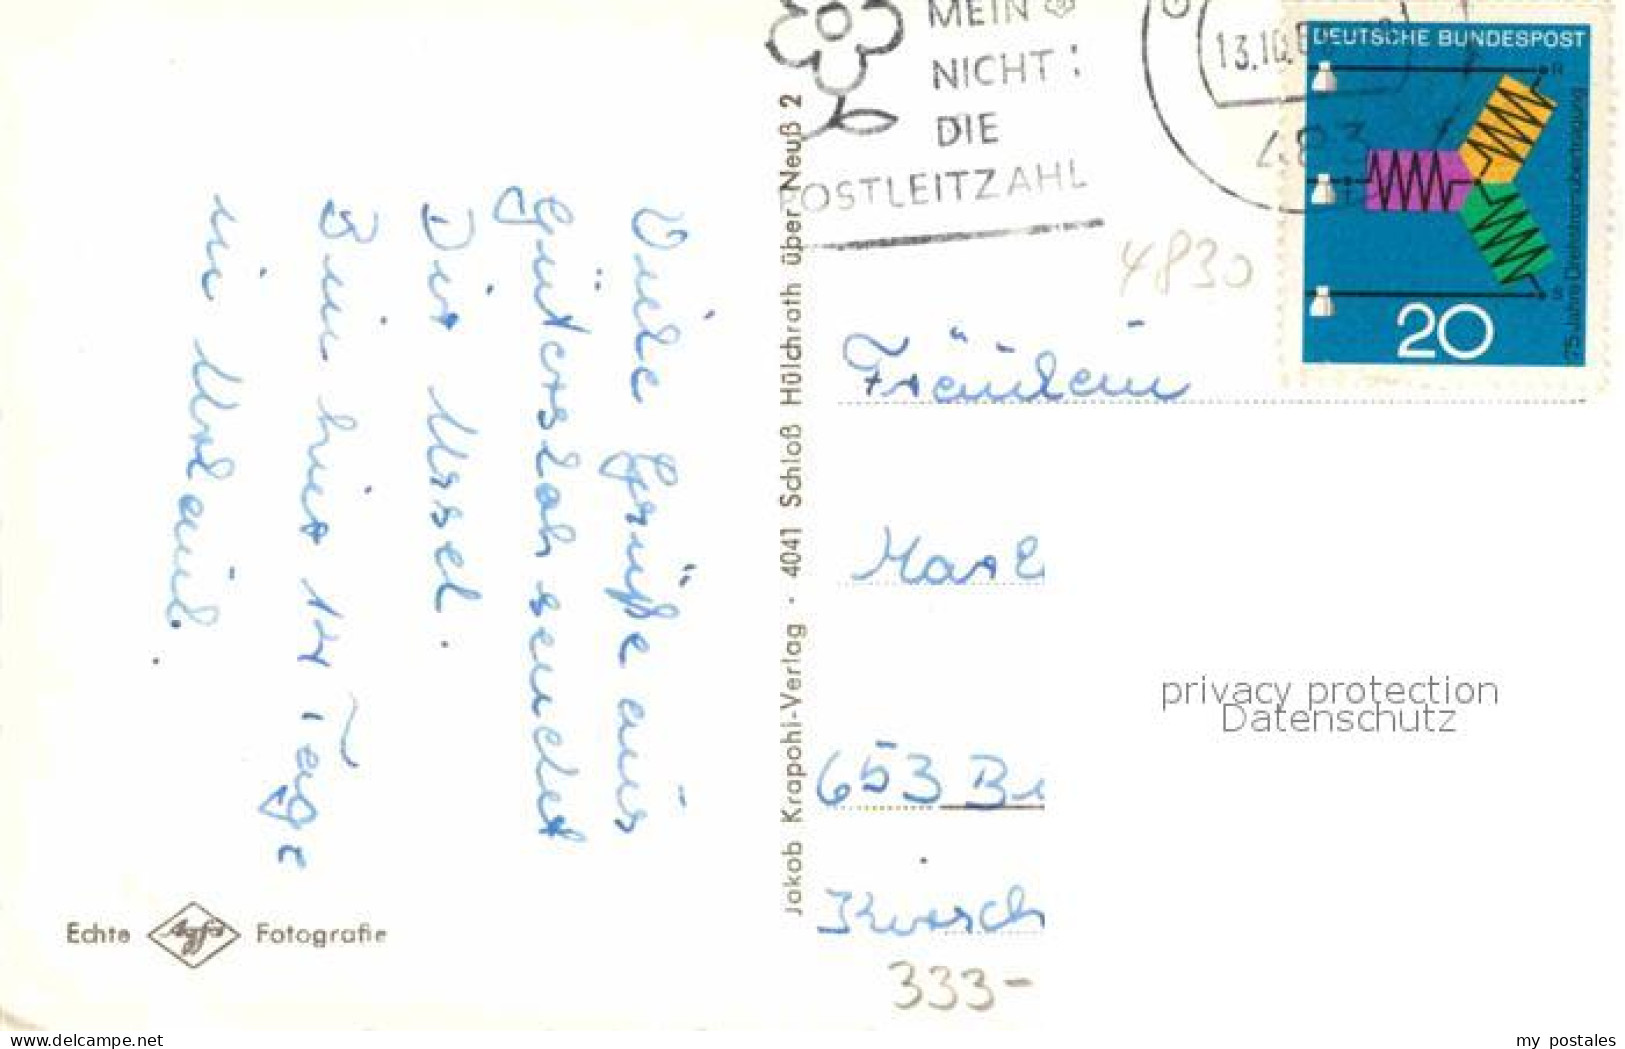 Viele Grüße aus
Gütersloh sendet
Dir Ursel.
Bin hier 14 Tage
in Urlaub.
Echte Agfa Fotografie
Jakob Krapohl-Verlag · 4041 Schloß Hülchrath über Neuß 2
MEIN
NICHT:
DIE
POSTLEITZAHL
13.10.6
483
DEUTSCHE BUNDESPOST
R
T
S
20
75 Jahre Drehstromübertragung
4830
Fräulein
653 Bi
333-
privacy protection
Datenschutz
www.delcampe.net
my_postales